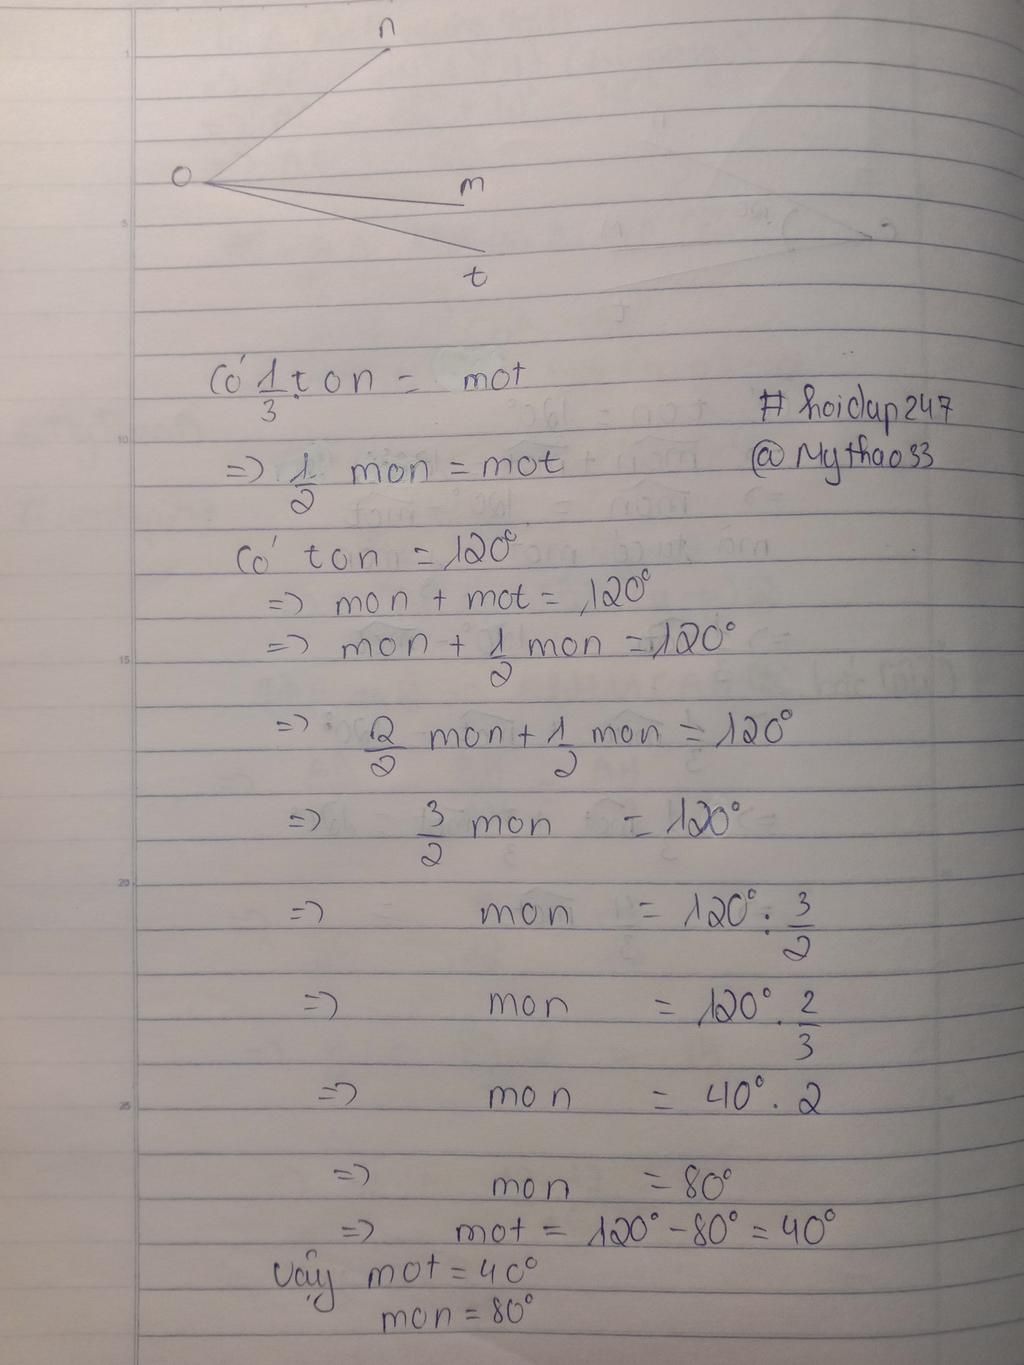 n
O
m
t
Có 1/3 ton = mot
# hoidap247
=> 1/2 mon = mot
@Mythao33
Có ton = 120°
=> mon + mot = 120°
=> mon + 1/2 mon = 120°
=> 2/2 mon + 1/2 mon = 120°
=> 3/2 mon = 120°
=> mon = 120° : 3/2
=> mon = 120° . 2/3
=> mon = 40° . 2
=> mon = 80°
=> mot = 120° - 80° = 40°
Vậy mot = 40°
mon = 80°